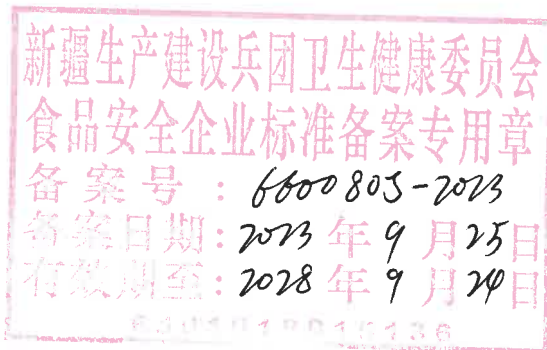 新疆生产建设兵团卫生健康委员会
食品安全企业标准备案专用章
备案号：6600805-2023
备案日期：2023年9月25日
有效期至：2028年9月24日